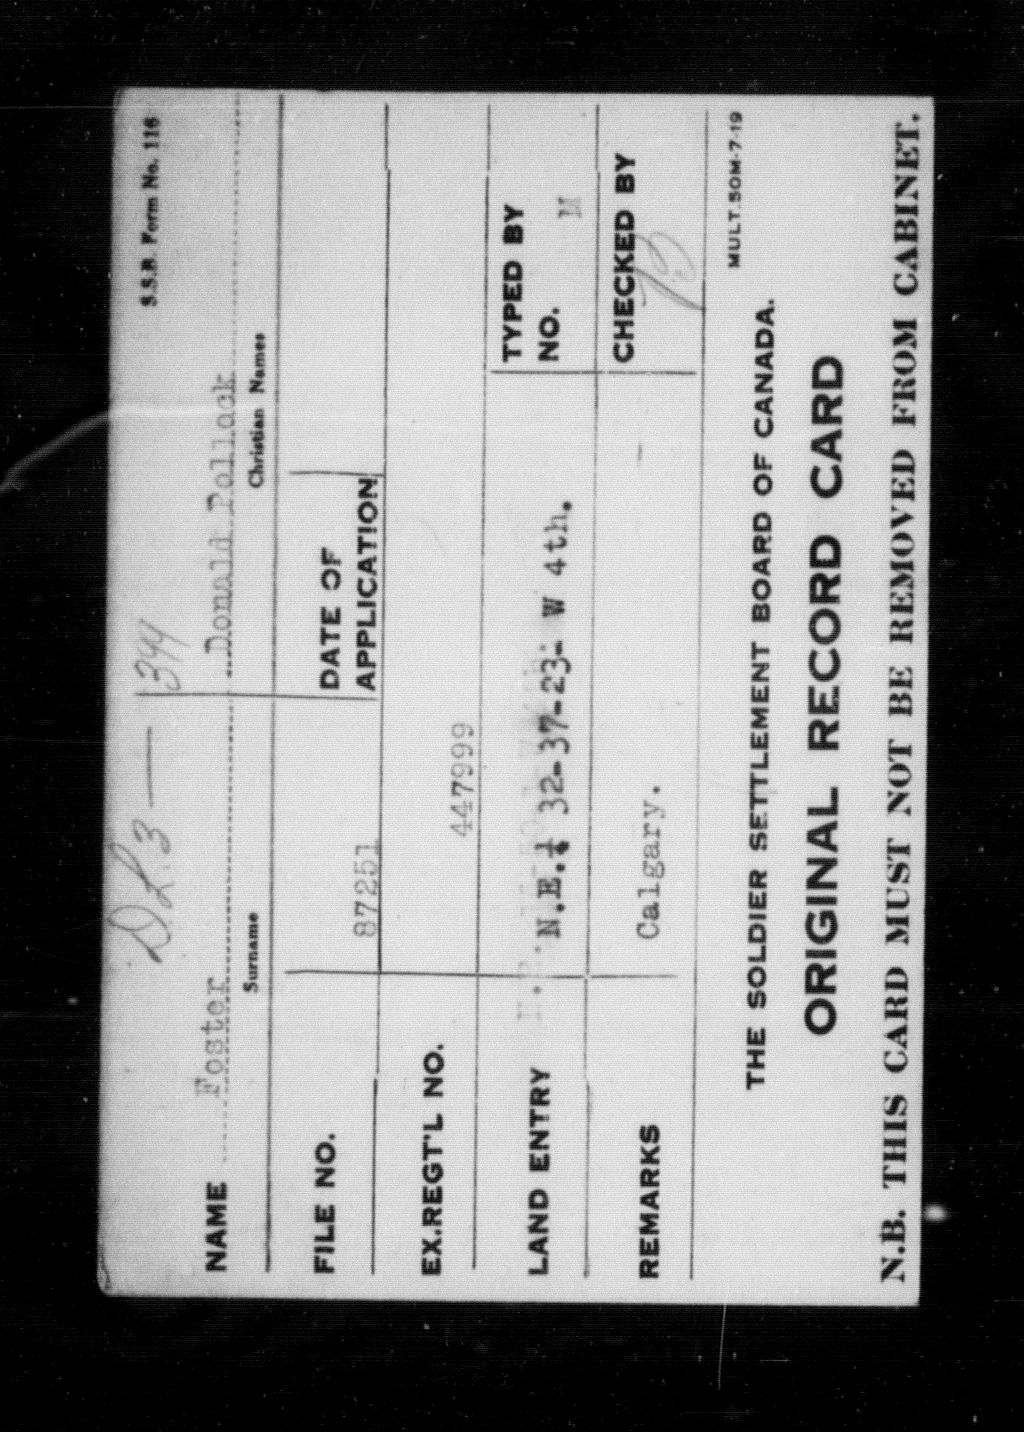 S.S.B. Form No. 116
D.L. 3 — 344
NAME Foster Donald Pollock
Surname Christian Names
FILE NO. 87251 DATE OF APPLICATION
EX.REGT'L NO. 447999
LAND ENTRY N.E.¼ 32-37-23- W 4th. TYPED BY NO. M
REMARKS Calgary. CHECKED BY
MULT.50M-7-19
THE SOLDIER SETTLEMENT BOARD OF CANADA.
ORIGINAL RECORD CARD
N.B. THIS CARD MUST NOT BE REMOVED FROM CABINET.